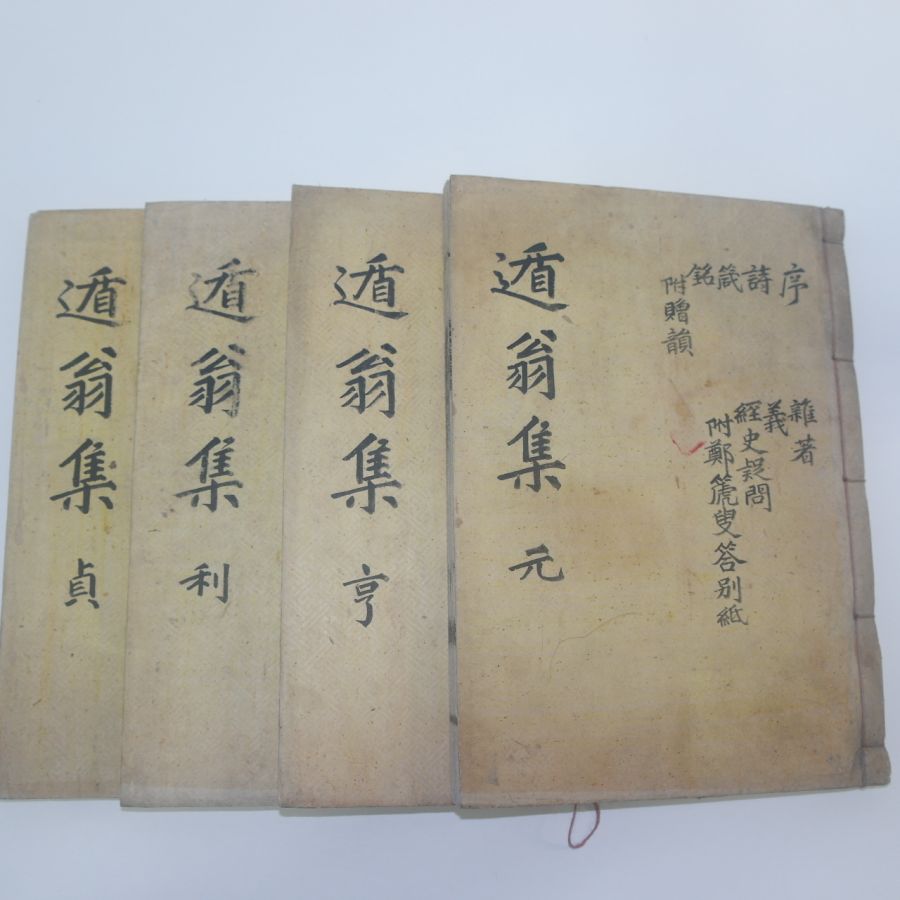 序
詩
箴
銘
附贈韻
雜著
義
経史疑問
附鄭篪叟答別紙
遁翁集 元
遁翁集 亨
遁翁集 利
遁翁集 貞